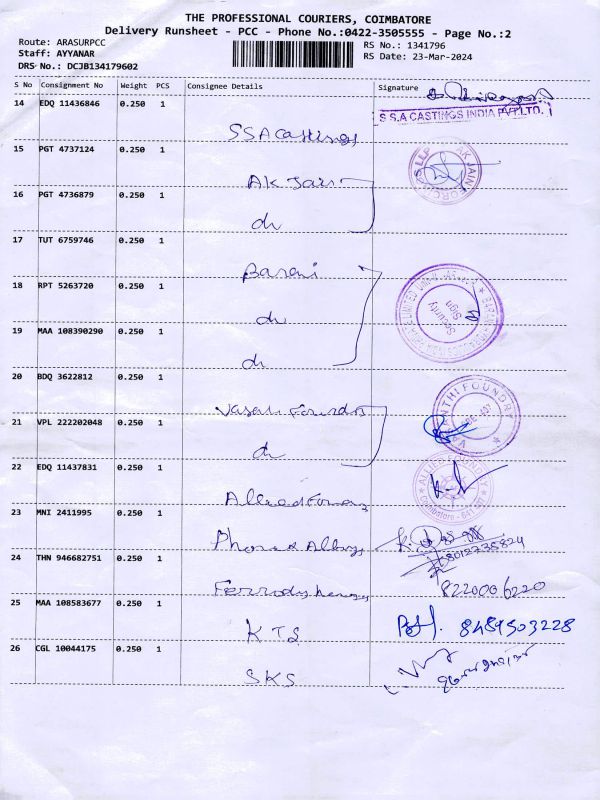 THE PROFESSIONAL COURIERS, COIMBATORE
Delivery Runsheet - PCC - Phone No.:0422-3505555 - Page No.:2
Route: ARASURPCC
Staff: AYYANAR
DRS No.: DCJB134179602
RS No.: 1341796
RS Date: 23-Mar-2024
S No Consignment No Weight PCS Consignee Details Signature
14 EDQ 11436846 0.250 1
SSA Castings
S S.A CASTINGS INDIA PVT.LTD.
15 PGT 4737124 0.250 1
AK Jain
AK JAIN FORGINGS LLP
16 PGT 4736879 0.250 1
do
17 TUT 6759746 0.250 1
Barani
18 RPT 5263720 0.250 1
do
Security
Sign
19 MAA 108390290 0.250 1
do
20 BDQ 3622812 0.250 1
21 VPL 222202048 0.250 1
do
FOUNDRY
22 EDQ 11437831 0.250 1
ALLIED FOUNDRY
Coimbatore
23 MNI 2411995 0.250 1
24 THN 946682751 0.250 1
8220006220
25 MAA 108583677 0.250 1
KTS
8489503228
26 CGL 10044175 0.250 1
SKS